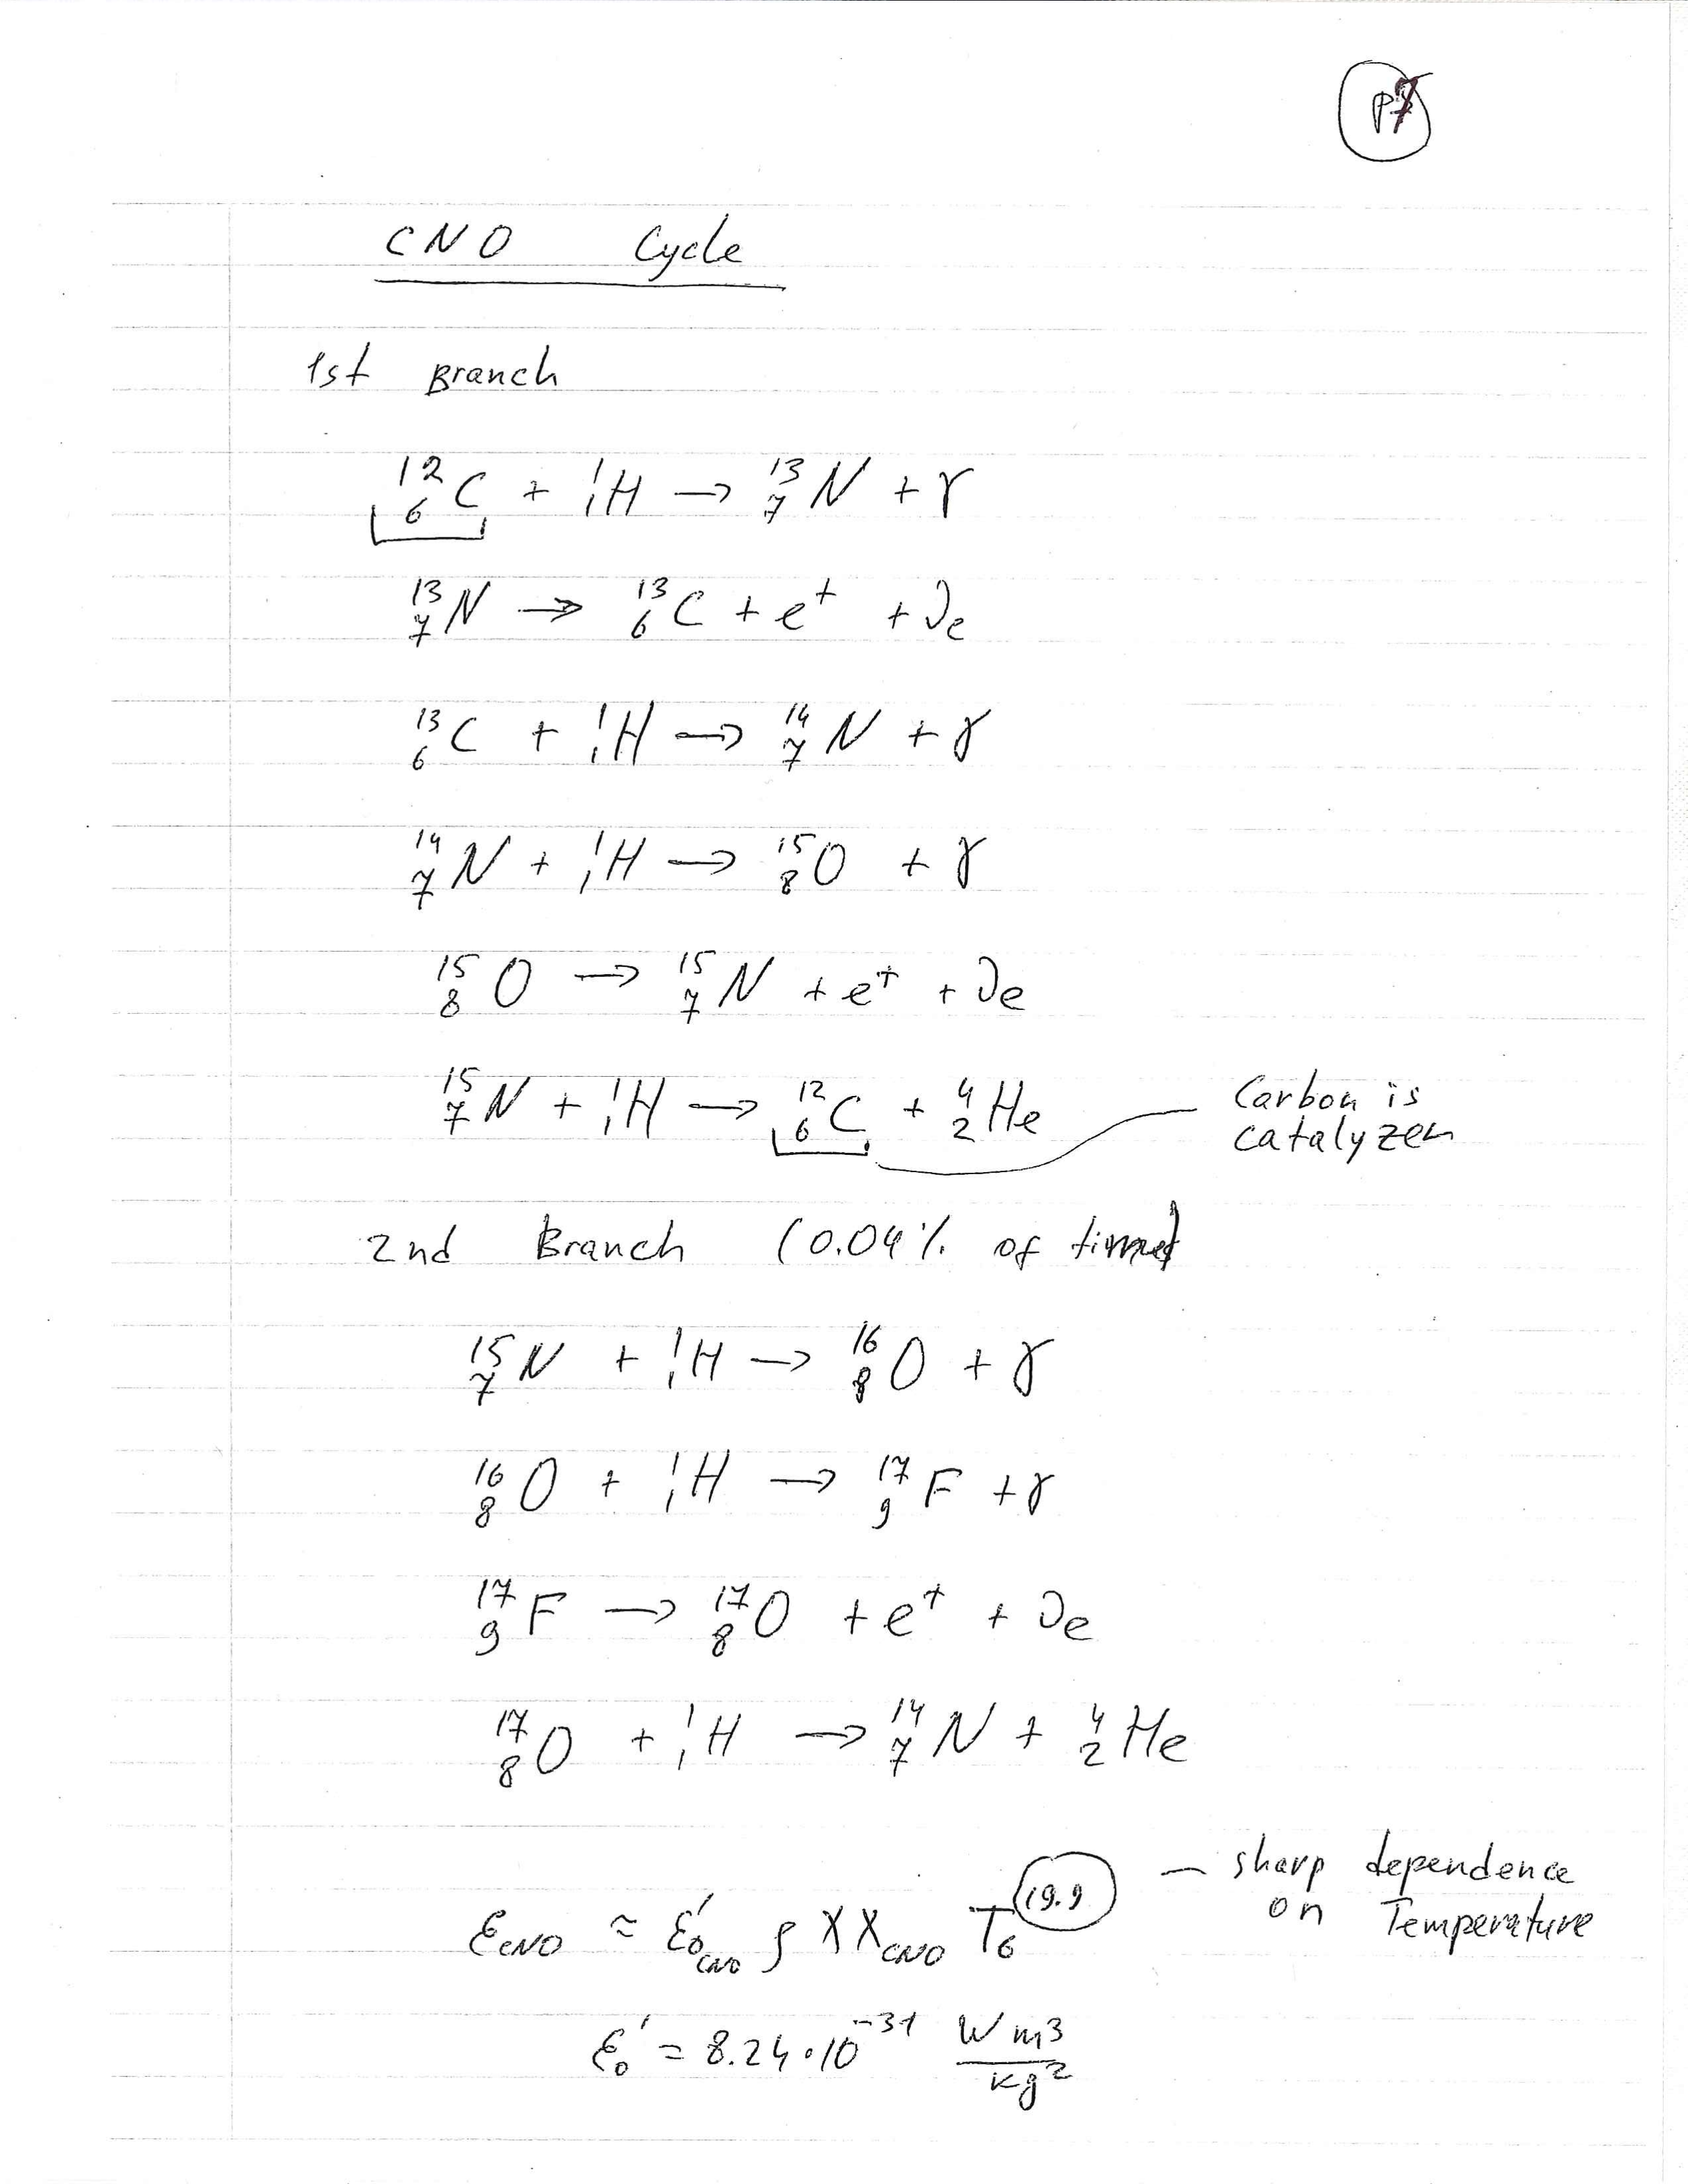 p7
CNO Cycle
1st Branch
¹²₆C + ¹₁H → ¹³₇N + γ
¹³₇N → ¹³₆C + e⁺ + νe
¹³₆C + ¹₁H → ¹⁴₇N + γ
¹⁴₇N + ¹₁H → ¹⁵₈O + γ
¹⁵₈O → ¹⁵₇N + e⁺ + νe
¹⁵₇N + ¹₁H → ¹²₆C + ⁴₂He
Carbon is
catalyzer
2nd Branch (0.04% of time)
¹⁵₇N + ¹₁H → ¹⁶₈O + γ
¹⁶₈O + ¹₁H → ¹⁷₉F + γ
¹⁷₉F → ¹⁷₈O + e⁺ + νe
¹⁷₈O + ¹₁H → ¹⁴₇N + ⁴₂He
ε_CNO ≈ ε′₀,CNO ρ X X_CNO T₆^19.9 — sharp dependence
on Temperature
ε′₀ = 8.24·10⁻³¹ W m³/kg²